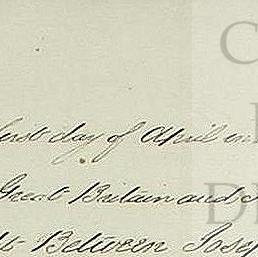 C
first day of April in
D
Great Britain and
Between Josep